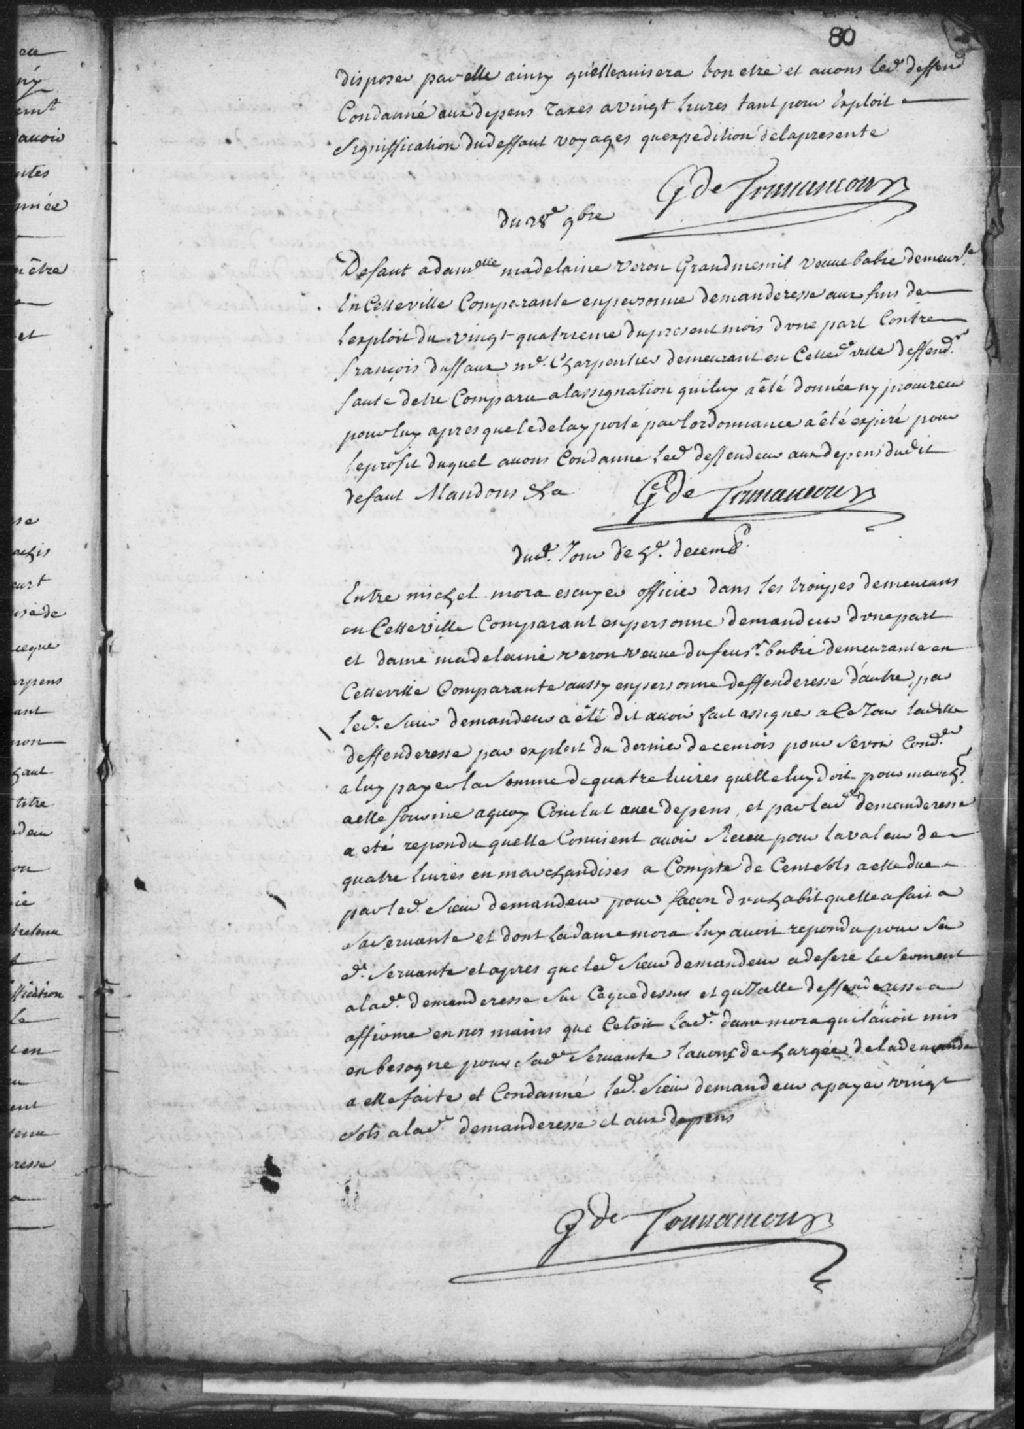 80
disposer par elle ainsy quelle avisera bon etre et avons led. deffend.
Condanné aux depens Taxés a vingt livres tant pour Exploit
Signiffication du deffaut voyages quexpedition de la presente
G de Tonnancour
du 28e 9bre
Defaut a damelle madelaine veron Grandmenil veuve babie demeurte
En Cette ville Comparante en personne demanderesse aux fins de
lexploit du vingt quatrieme du present mois dune part Contre
françois dussaux me. Charpentier demeurant en Cette d. ville deffendr.
faute detre Comparu a lassignation qui luy a été donnée ny procureur
pour luy apres que le delay porté par lordonnance a été expiré pour
le profit duquel avons Condanné led. deffendeur aux depens dudit
defaut Mandons &a
G de Tonnancour
decemb.
Entre michel mora escuyer officier dans les troupes demeurant
en Cette ville Comparant en personne demandeur dune part
et dame madelaine veron veuve du feu sr. babie demeurante en
Cette ville Comparante aussy en personne deffenderesse dautre pa
led. Sieur demandeur a été dit avoir fait assigner a Ce Jour ladite
deffenderesse par exploit du dernier de ce mois pour se voir Conder
a luy payer la Somme de quatre livres quelle luy doit pour march.
a elle fournie a quoy Conclut avec depens, et par lad. demanderesse
a été repondu quelle Convient avoir Receu pour la valeur de
quatre livres en marchandises a Compte de Cent Sols a elle due
par led. Sieur demandeur pour façon dun habit quelle a fait a
Sa Servante et dont la dame mora luy avoit repondu pour Sa
d. Servante et apres que led. Sieur demandeur a deferé le Serment
a lad. demanderesse Sur Ce que dessus et quelle deffenderesse a
affirmé en nos mains que Cetoit lad. dame mora qui lavoit mis
en besogne pour Sad. Servante lavons dechargée de la demande
a elle faite et Condanné led. Sieur demandeur a payer vingt
Sols a lad. demanderesse et aux depens
G de Tonnancour